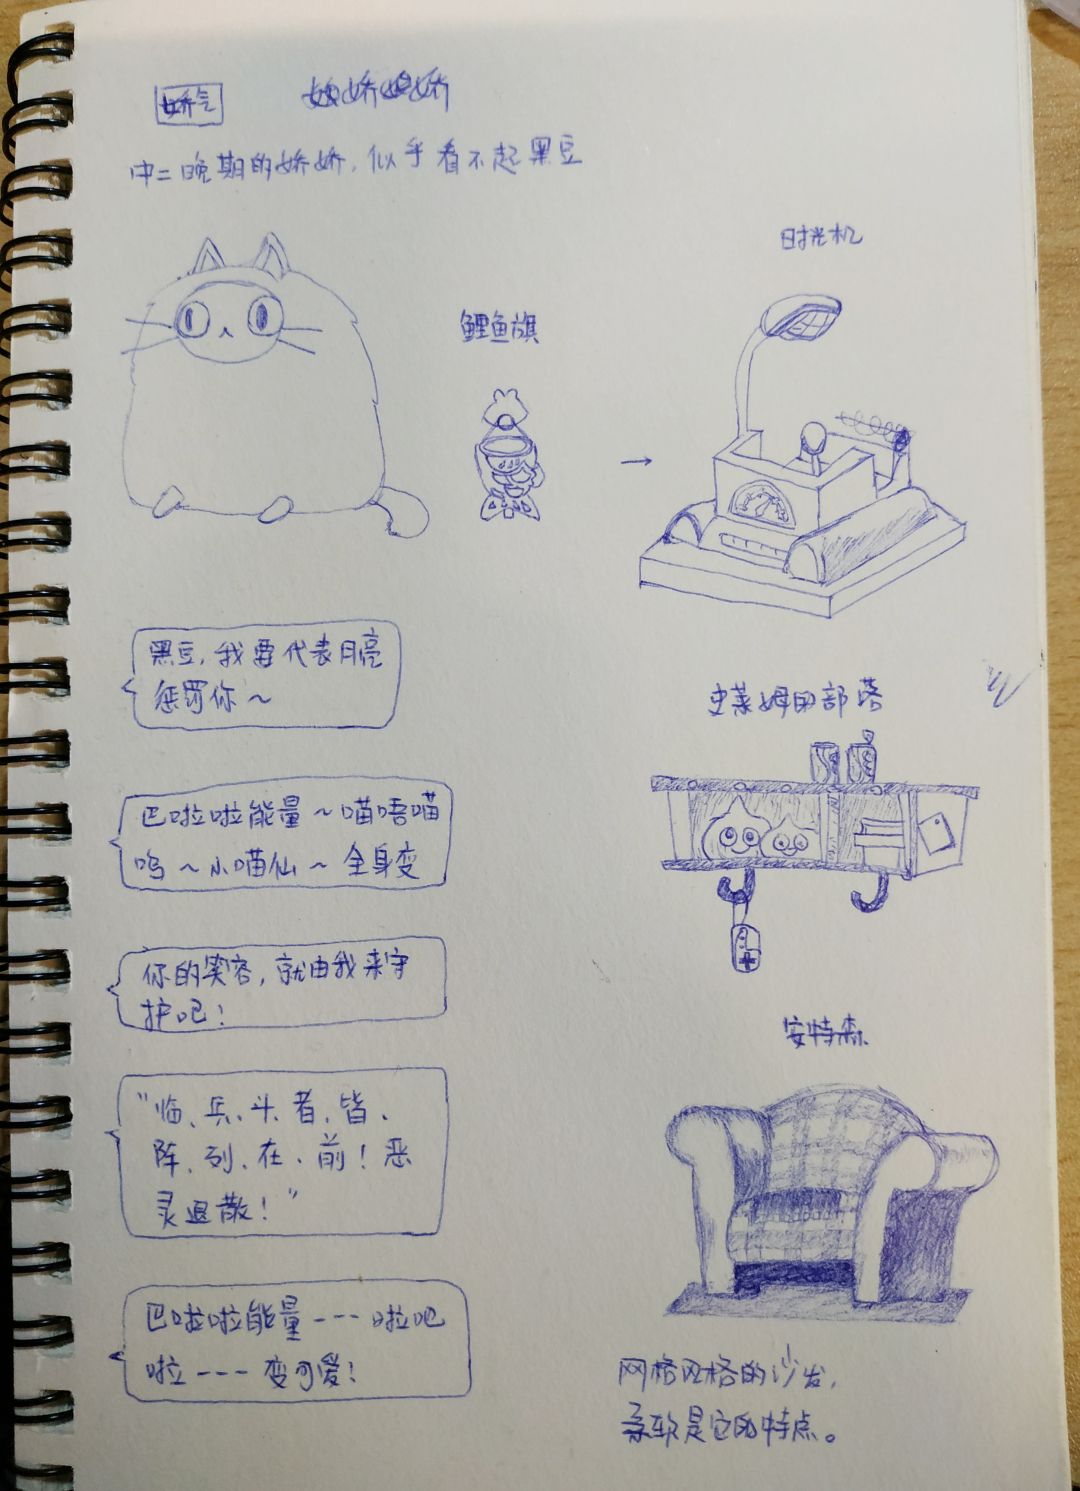 娇气
娇娇
中二晚期的娇娇，似乎看不起黑豆
鲤鱼旗
时光机
黑豆，我要代表月亮
惩罚你～
巴啦啦能量～喵唔喵
呜～小喵仙～全身变
你的笑容，就由我来守
护吧！
“临、兵、斗、者、皆、
阵、列、在、前！恶
灵退散！”
巴啦啦能量---啦吧
啦---变可爱！
史莱姆的部落
安特森
网格风格的沙发，
柔软是它的特点。